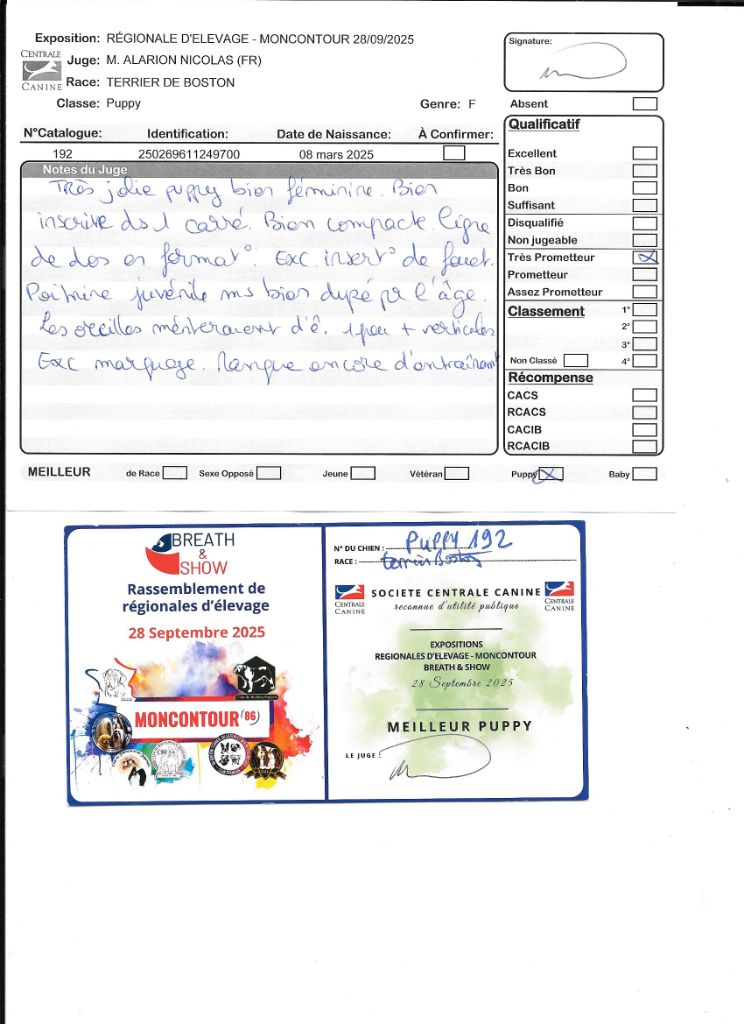 Exposition: RÉGIONALE D'ELEVAGE - MONCONTOUR 28/09/2025
CENTRALE CANINE
Juge: M. ALARION NICOLAS (FR)
Race: TERRIER DE BOSTON
Classe: Puppy Genre: F
N°Catalogue: Identification: Date de Naissance: À Confirmer:
192 250269611249700 08 mars 2025
Notes du Juge
Très jolie puppy bien féminine. Bien
inscrite ds 1 carré. Bien compacte. Ligne
de dos en format°. Exc. insert° de fouet.
Poitrine juvénile ms bien dvpé pr l'âge.
Les oreilles mériteraient d'ê. 1 peu + verticales
Exc marquage. Manque encore d'entraînmt
Signature:
Absent
Qualificatif
Excellent
Très Bon
Bon
Suffisant
Disqualifié
Non jugeable
Très Prometteur X
Prometteur
Assez Prometteur
Classement 1°
2°
3°
Non Classé 4°
Récompense
CACS
RCACS
CACIB
RCACIB
MEILLEUR de Race Sexe Opposé Jeune Vétéran Puppy X Baby
BREATH
&
SHOW
Rassemblement de
régionales d'élevage
28 Septembre 2025
MONCONTOUR (86)
N° DU CHIEN : PUPPY 192
RACE : terrier Boston
CENTRALE CANINE
SOCIETE CENTRALE CANINE
reconnue d'utilité publique
CENTRALE CANINE
EXPOSITIONS
REGIONALES D'ELEVAGE - MONCONTOUR
BREATH & SHOW
28 Septembre 2025
MEILLEUR PUPPY
LE JUGE :